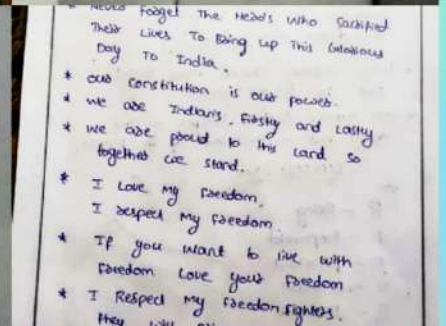 * Never Forget The Heros Who Sacrified
Their Lives To Bring up This Glorious
Day To India.
* our constitution is our power.
* we are Indians. firstly and lastly
* we are proud to this land so
together we stand.
* I Love my freedom.
I respect my freedom.
* If you want to live with
freedom Love your freedom
* I Respect my freedom fighters.
they